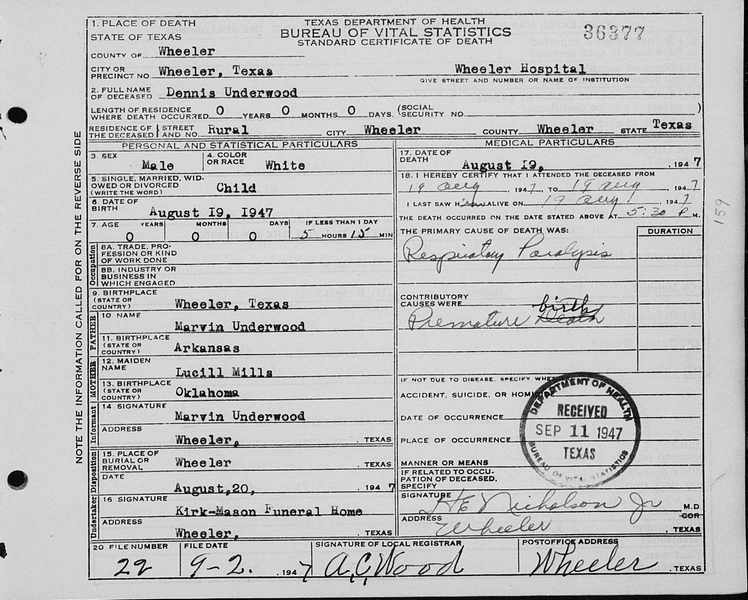 1. PLACE OF DEATH
STATE OF TEXAS
TEXAS DEPARTMENT OF HEALTH
BUREAU OF VITAL STATISTICS
STANDARD CERTIFICATE OF DEATH
36377
COUNTY OF Wheeler
CITY OR PRECINCT NO. Wheeler, Texas Wheeler Hospital
GIVE STREET AND NUMBER OR NAME OF INSTITUTION
2. FULL NAME OF DECEASED Dennis Underwood
LENGTH OF RESIDENCE WHERE DEATH OCCURRED 0 YEARS 0 MONTHS 0 DAYS. (SOCIAL SECURITY NO.
RESIDENCE OF THE DECEASED STREET AND NO. Rural CITY Wheeler COUNTY Wheeler STATE Texas
PERSONAL AND STATISTICAL PARTICULARS
3. SEX Male 4. COLOR OR RACE White
5. SINGLE, MARRIED, WIDOWED OR DIVORCED (WRITE THE WORD) Child
6. DATE OF BIRTH August 19, 1947
7. AGE YEARS MONTHS DAYS IF LESS THAN 1 DAY
0 0 0 5 HOURS 15 MIN
Occupation
8A. TRADE, PROFESSION OR KIND OF WORK DONE
8B. INDUSTRY OR BUSINESS IN WHICH ENGAGED
9. BIRTHPLACE (STATE OR COUNTRY) Wheeler, Texas
FATHER
10. NAME Marvin Underwood
11. BIRTHPLACE (STATE OR COUNTRY) Arkansas
MOTHER
12. MAIDEN NAME Lucill Mills
13. BIRTHPLACE (STATE OR COUNTRY) Oklahoma
Informant
14. SIGNATURE Marvin Underwood
ADDRESS Wheeler, , TEXAS
Disposition
15. PLACE OF BURIAL OR REMOVAL Wheeler , TEXAS
DATE August, 20, 1947
Undertaker
16. SIGNATURE Kirk-Mason Funeral Home
ADDRESS Wheeler, , TEXAS
MEDICAL PARTICULARS
17. DATE OF DEATH August 19, 1947
18. I HEREBY CERTIFY THAT I ATTENDED THE DECEASED FROM
19 Aug 1947 TO 19 Aug 1947
I LAST SAW H im ALIVE ON 19 Aug 1947
THE DEATH OCCURRED ON THE DATE STATED ABOVE AT 5:30 P M.
THE PRIMARY CAUSE OF DEATH WAS: DURATION
Respiratory Paralysis
CONTRIBUTORY CAUSES WERE birth
Premature Death
IF NOT DUE TO DISEASE, SPECIFY
ACCIDENT, SUICIDE, OR
DATE OF OCCURRENCE
PLACE OF OCCURRENCE
MANNER OR MEANS
IF RELATED TO OCCUPATION OF DECEASED, SPECIFY
DEPARTMENT OF HEALTH
RECEIVED
SEP 11 1947
TEXAS
BUREAU OF VITAL STATISTICS
SIGNATURE H E Nicholson Jr M.D.
COR
ADDRESS Wheeler , TEXAS
20. FILE NUMBER FILE DATE SIGNATURE OF LOCAL REGISTRAR POSTOFFICE ADDRESS
22 9-2. 1947 A.C. Wood Wheeler , TEXAS
NOTE THE INFORMATION CALLED FOR ON THE REVERSE SIDE
159